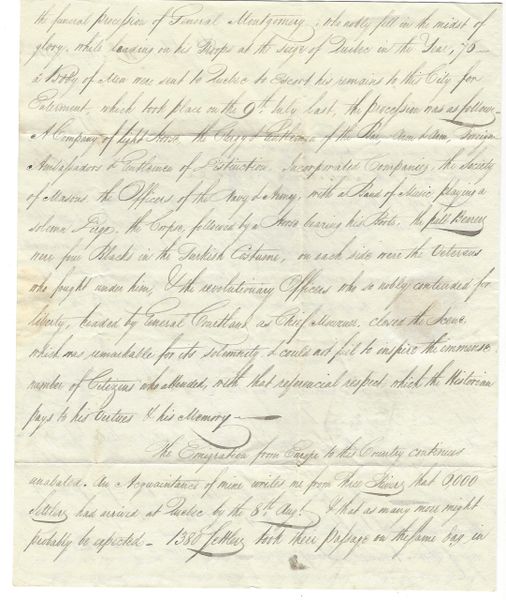 the funeral procession of General Montgomery, who nobly fell in the midst of
glory, while leading on his Troops at the siege of Quebec in the Year, 75 —
a Body of Men were sent to Quebec to Escort his remains to this City for
Interment, which took place on the 9th July last, the procession was as follows
A Company of light Horse, the Clergy & Gentlemen of the Bar, Arm & Arm, Foreign
Ambassadors & Gentlemen of Distinction, Incorporated Companies, the Society
of Masons the Officers of the Navy & Army, with a Band of Music playing a
solemn Dirge, the Corpse, followed by a Horse bearing his Boots, the pall Bearers
were four Blacks in the Turkish Costume, on each side were the Veterans
who fought under him, & the revolutionary Officers who so nobly contended for
liberty, headed by General Courtland as Chief Mourner, closed the Scene
which was remarkable for its solemnity & could not fail to inspire the immense
number of Citizens who attended, with that reverencial respect which the Historian
pays to his Virtues & his Memory —
The Emigration from Europe to this Country continues
unabated. An Acquaintance of mine writes me from Three Rivers that 6000
Settlers had arrived at Quebec by the 8th Augt. & that as many more might
probably be expected — 1380 Settlers took their passage on the same day in